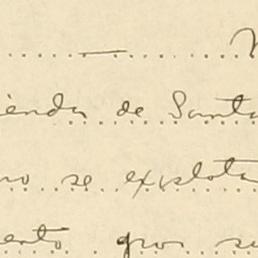 ienda de Santa
no se explota
ento por su